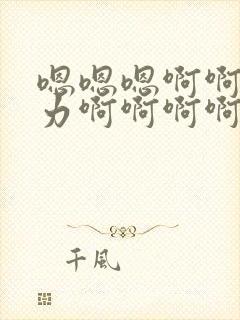 嗯嗯嗯啊啊
力啊啊啊啊
千風